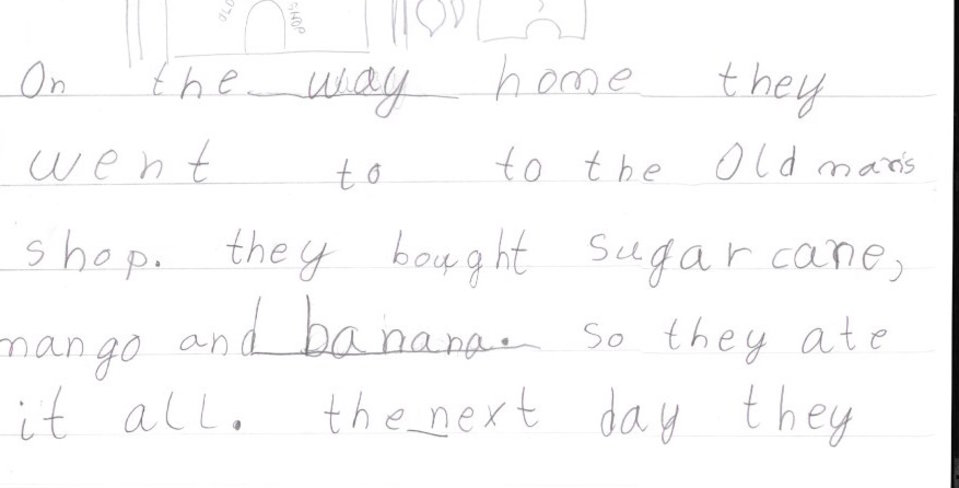 OLD SHOP
On the way home they
went to to the Old man's
shop. they bought sugar cane,
mango and banana. so they ate
it all. the next day they